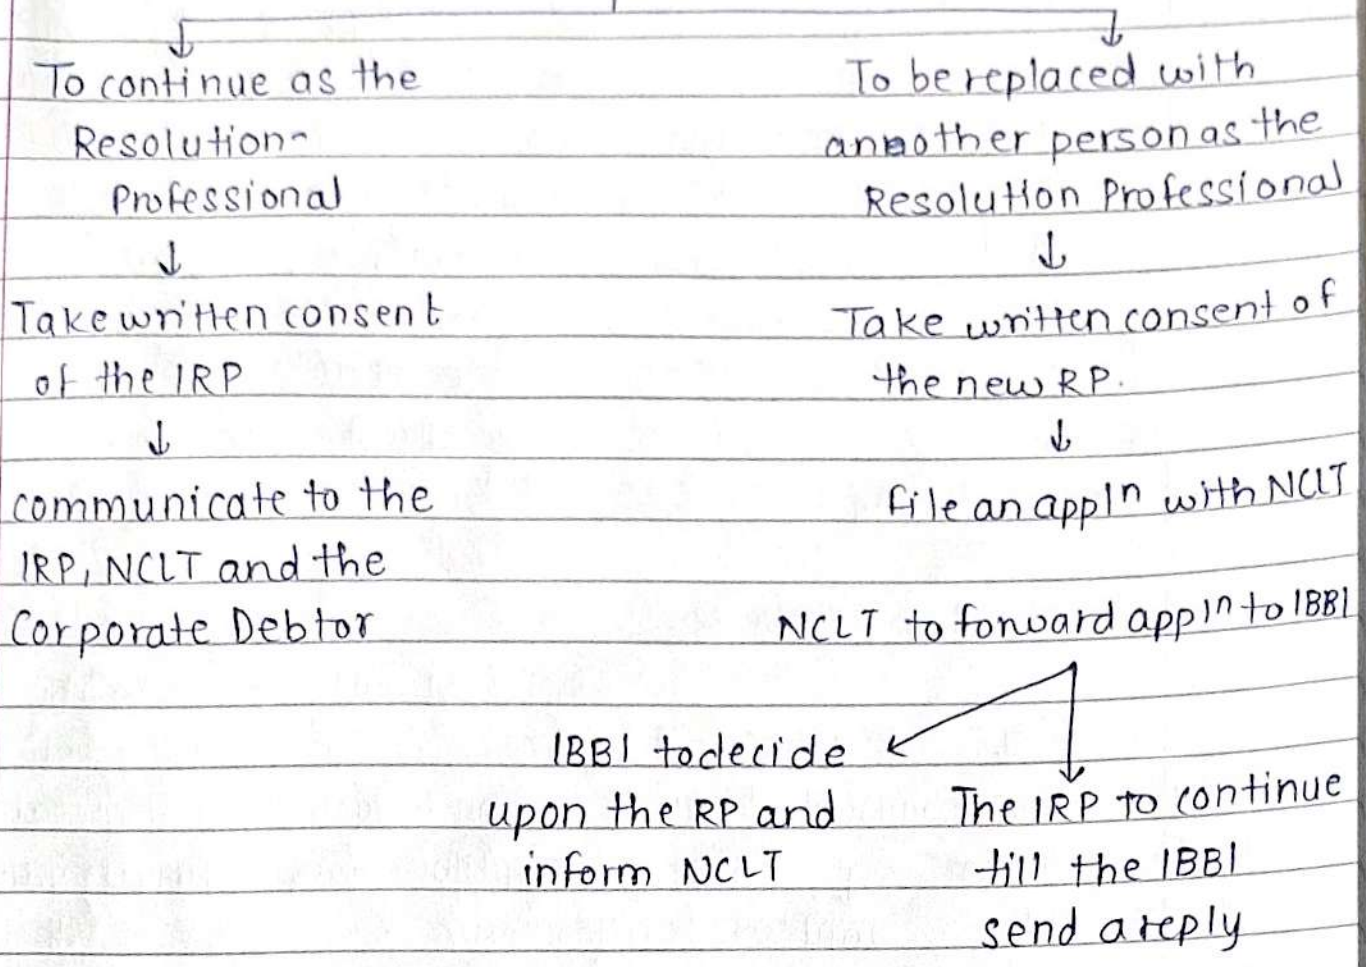 To continue as the
Resolution-
Professional
Take written consent
of the IRP
communicate to the
IRP, NCLT and the
Corporate Debtor
To be replaced with
another person as the
Resolution Professional
Take written consent of
the new RP.
File an appln with NCLT
NCLT to forward appln to IBBI
IBBI to decide
upon the RP and
inform NCLT
The IRP to continue
till the IBBI
send a reply